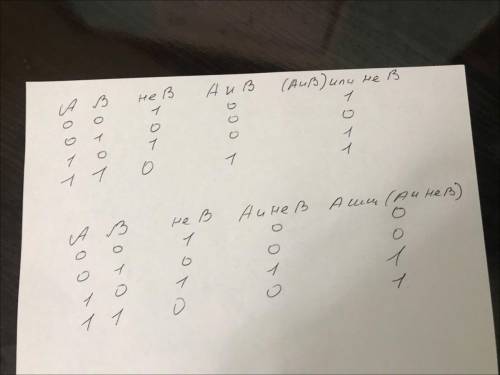 A B не B A и B (A и B) или не B
0 0 1 0 1
0 1 0 0 0
1 0 1 0 1
1 1 0 1 1
A B не B A и не B A или (A и не B)
0 0 1 0 0
0 1 0 0 0
1 0 1 1 1
1 1 0 0 1